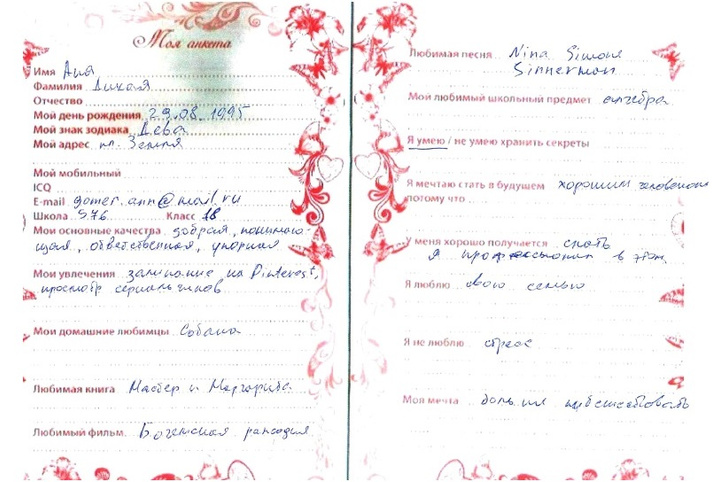 Моя анкета
Имя Аня
Фамилия Дикая
Отчество
Мой день рождения 29.08.1995
Мой знак зодиака Дева
Мой адрес пл. Земля
Мой мобильный
ICQ
E-mail gomer.ann@mail.ru
Школа 976 Класс 18
Мои основные качества добрая, понимаю-
щая, ответственная, упорная
Мои увлечения залипание на Pinterest,
просмотр сериальчиков
Мои домашние любимцы Собака
Любимая книга Мастер и Маргарита
Любимый фильм Богемская рапсодия
Любимая песня Nina Simone
Sinnerman
Мой любимый школьный предмет алгебра
Я умею / не умею хранить секреты
Я мечтаю стать в будущем хорошим человеком
потому что
У меня хорошо получается спать
я профессионал в этом
Я люблю свою семью
Я не люблю стресс
Моя мечта больше путешествовать